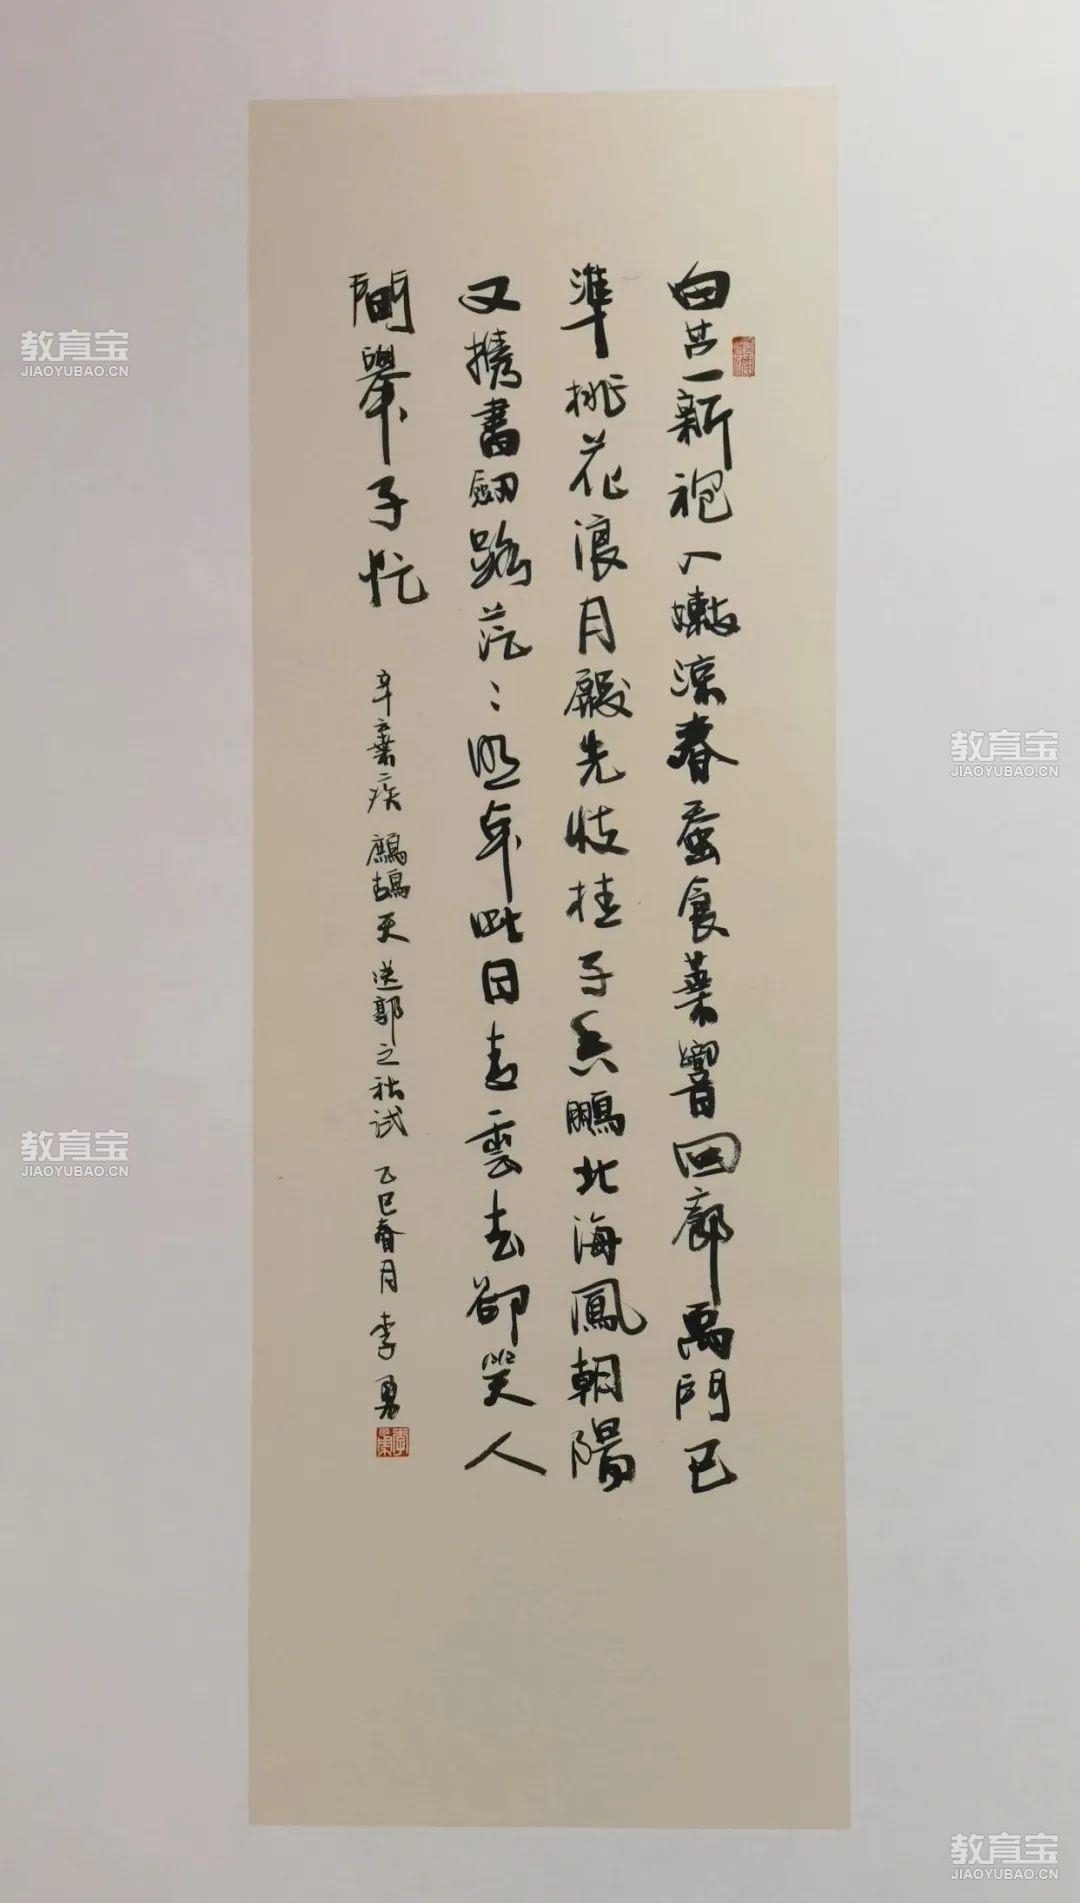 白苎新袍入嫩涼春蚕食葉響回廊禹門已
準桃花浪月殿先收桂子香鵬北海鳳朝陽
又携書劍路茫：明年此日青雲去卻笑人
間舉子忙
辛棄疾 鷓鴣天 送郭之秋试 乙巳春月 李勇
教育宝
JIAOYUBAO.CN
教育宝
JIAOYUBAO.CN
教育宝
JIAOYUBAO.CN
教育宝
JIAOYUBAO.CN